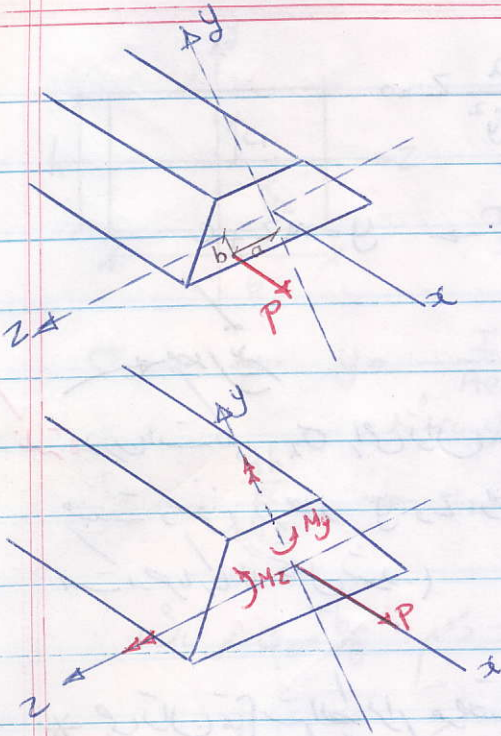 y
b
a
P
x
z
y
My
Mz
P
x
z